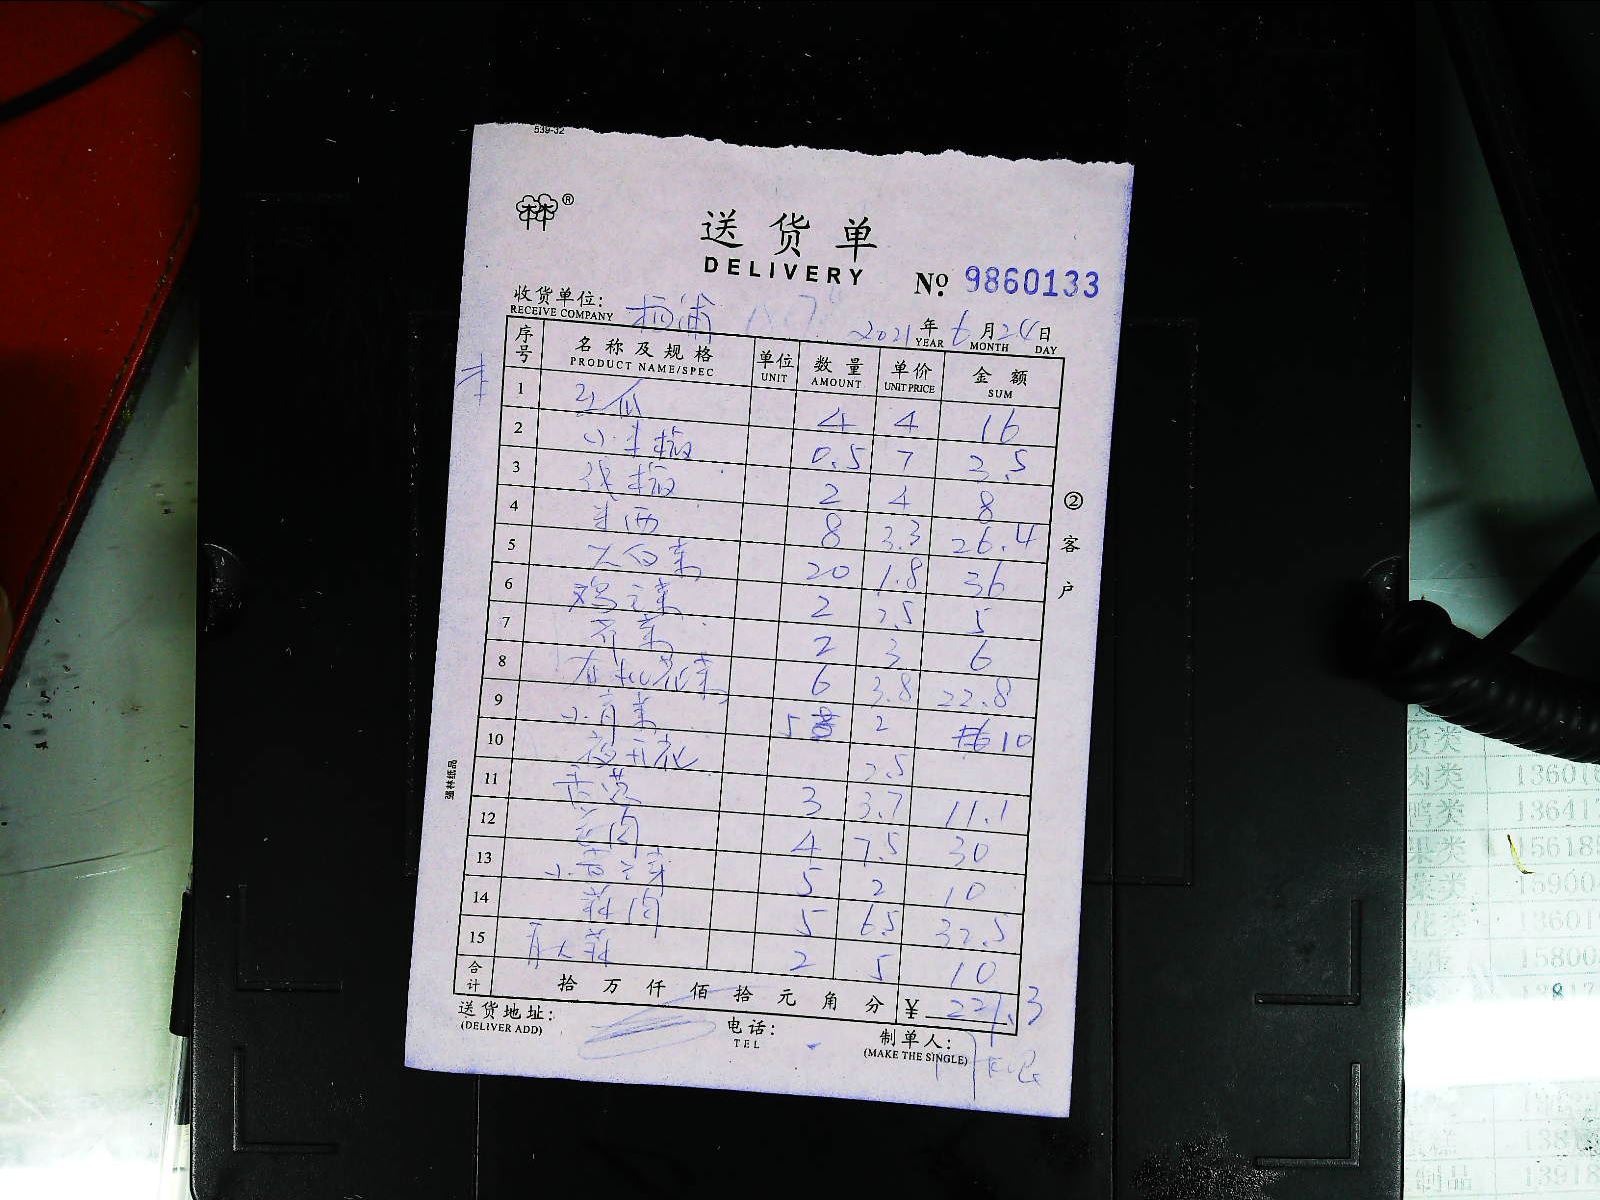 539-32
林®
送货单
DELIVERY
№ 9860133
收货单位: 杨浦
RECEIVE COMPANY
2021年6月24日
YEAR MONTH DAY
序号 名称及规格 单位 数量 单价 金额
PRODUCT NAME/SPEC UNIT AMOUNT UNIT PRICE SUM
1 4 4 16
2 小米椒 0.5 7 3.5
3 线椒 2 4 8
4 8 3.3 26.4
5 大白菜 20 1.8 36
6 鸡毛菜 2 2.5 5
7 芹菜 2 3 6
8 有机花菜 6 3.8 22.8
9 小青菜 5 2 10
10 夜开花 2.5
11 3 3.7 11.1
12 4 7.5 30
13 5 2 10
14 蒜肉 5 6.5 32.5
15 青大蒜 2 5 10
合计 拾 万 仟 佰 拾 元 角 分 ¥ 221.3
送货地址: 电话: 制单人:
(DELIVER ADD) TEL (MAKE THE SINGLE)
②客户
强林纸品
货类
肉类 13601
鸭类 13641
果类 15618
菜类 1590
花类 1360
1580
制品 1391